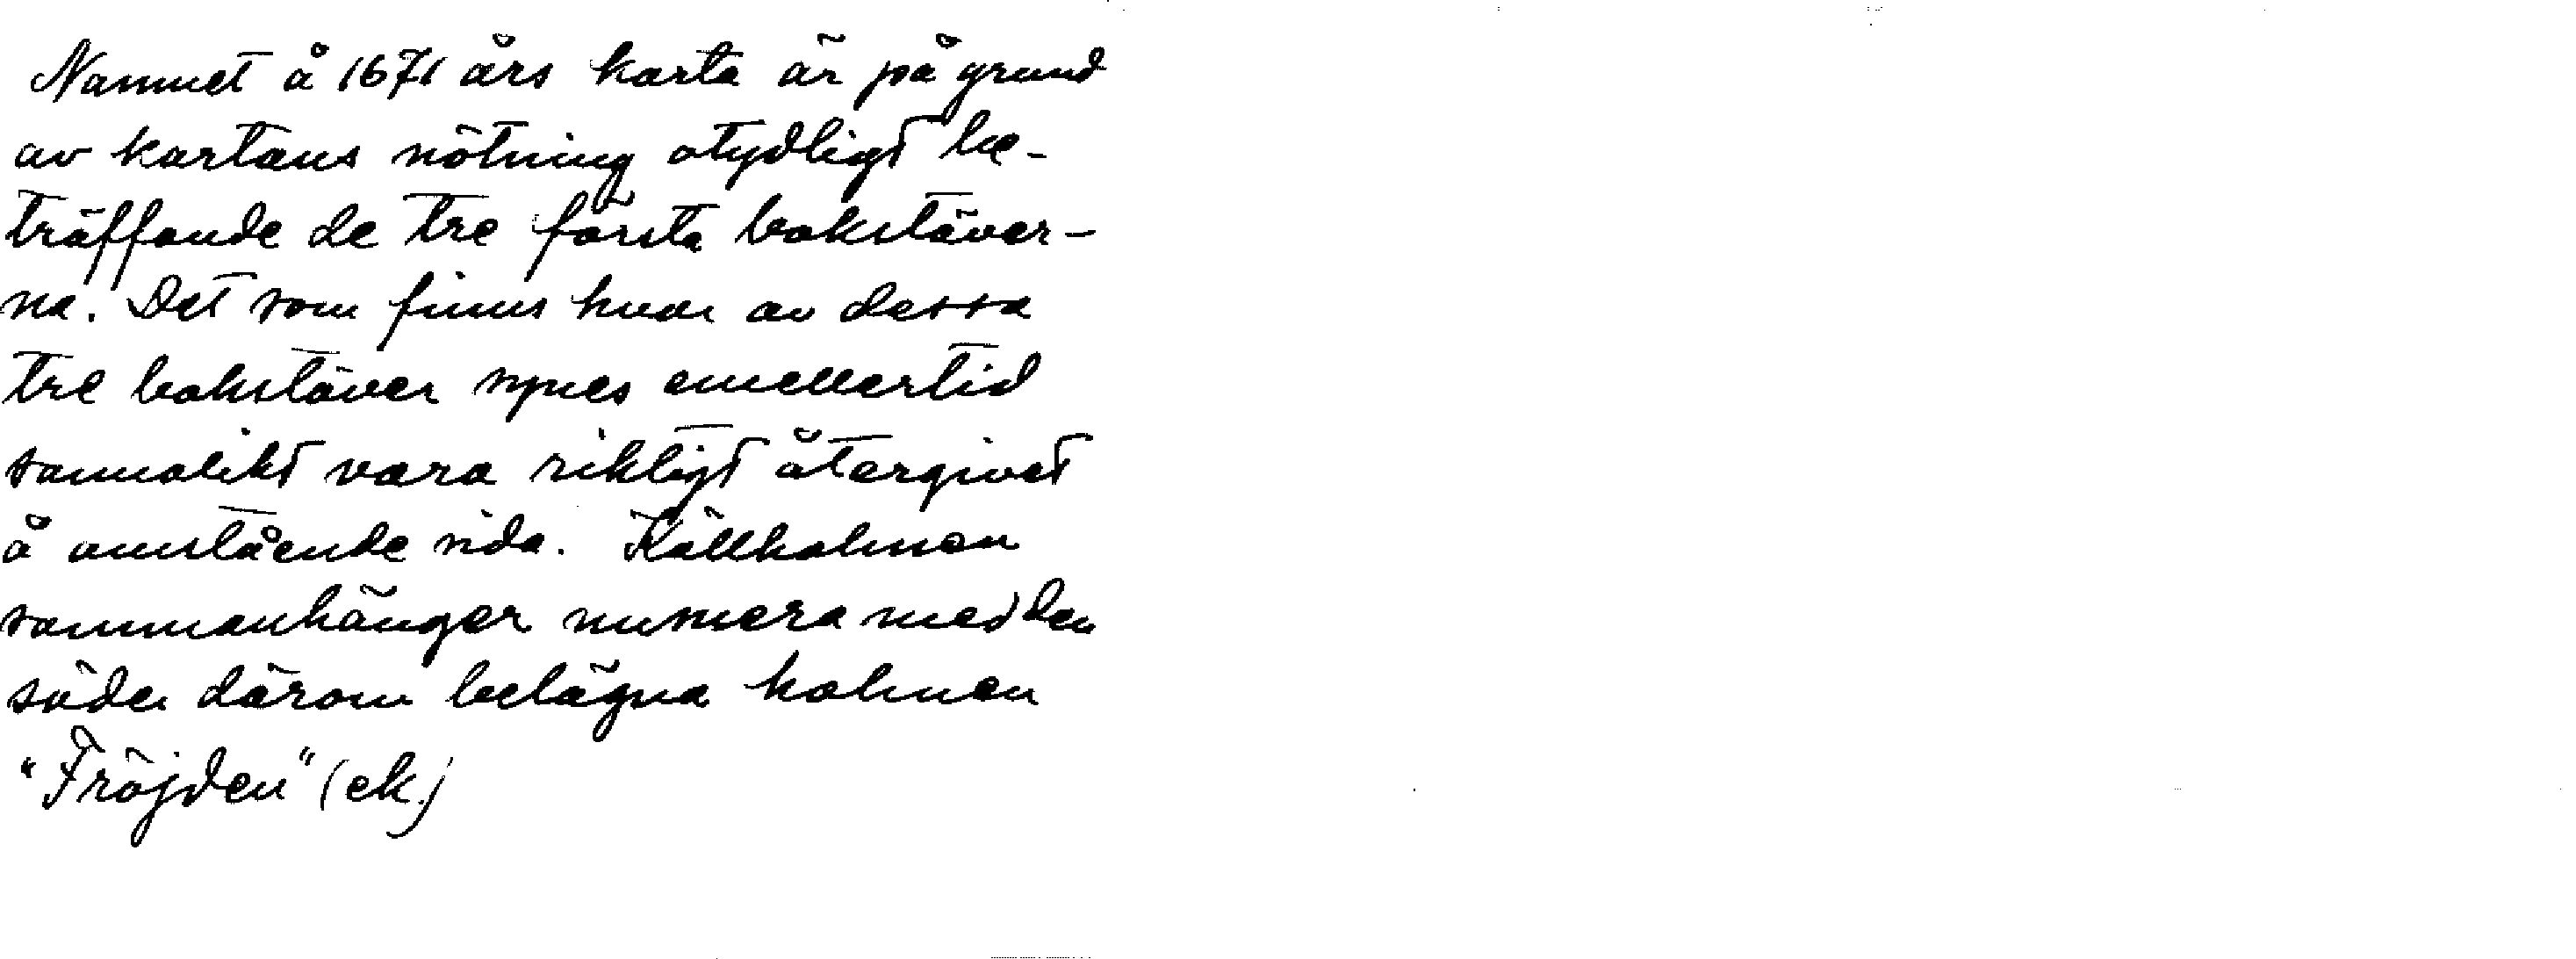 Namnet å 1671 års karta är på grund
av kartans nötning otydligt be-
träffande de tre första bokstäver-
na. Det som finns kvar av dessa
tre bokstäver synes emellertid
sannolikt vara riktigt återgivet
å omstående sida. Källholmen
sammanhänger numera med den
söder därom belägna holmen
"Fröjden" (ek.)